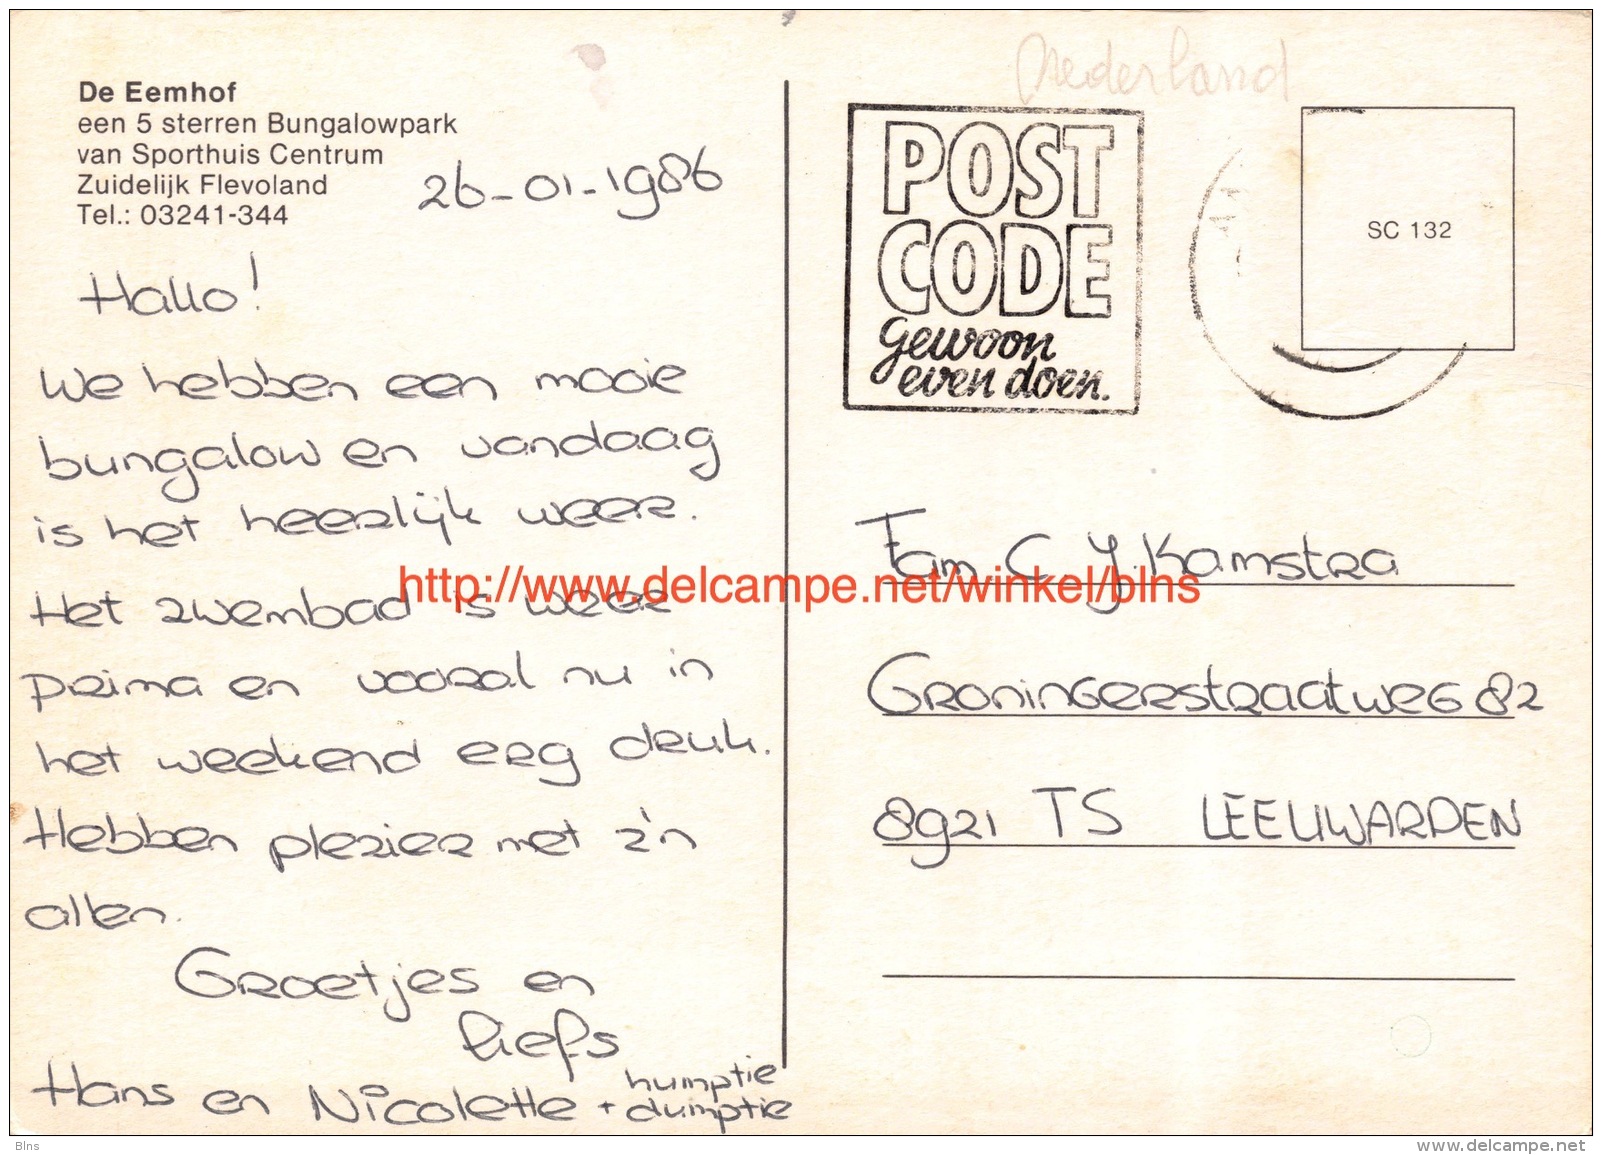 De Eemhof
een 5 sterren Bungalowpark
van Sporthuis Centrum
Zuidelijk Flevoland
Tel.: 03241-344
26-01-1986
Hallo!
We hebben een mooie
bungalow en vandaag
is het heerlijk weer.
Het zwembad is weer
prima en vooral nu in
het weekend erg druk.
Hebben plezier met z'n
allen.
Groetjes en
liefs
Hans en Nicolette + humptie
dumptie
Nederland
POST
CODE
gewoon
even doen.
SC 132
Fam C J. Kamstra
Groningerstraatweg 82
8921 TS LEEUWARDEN
http://www.delcampe.net/winkel/blns
Blns
www.delcampe.net